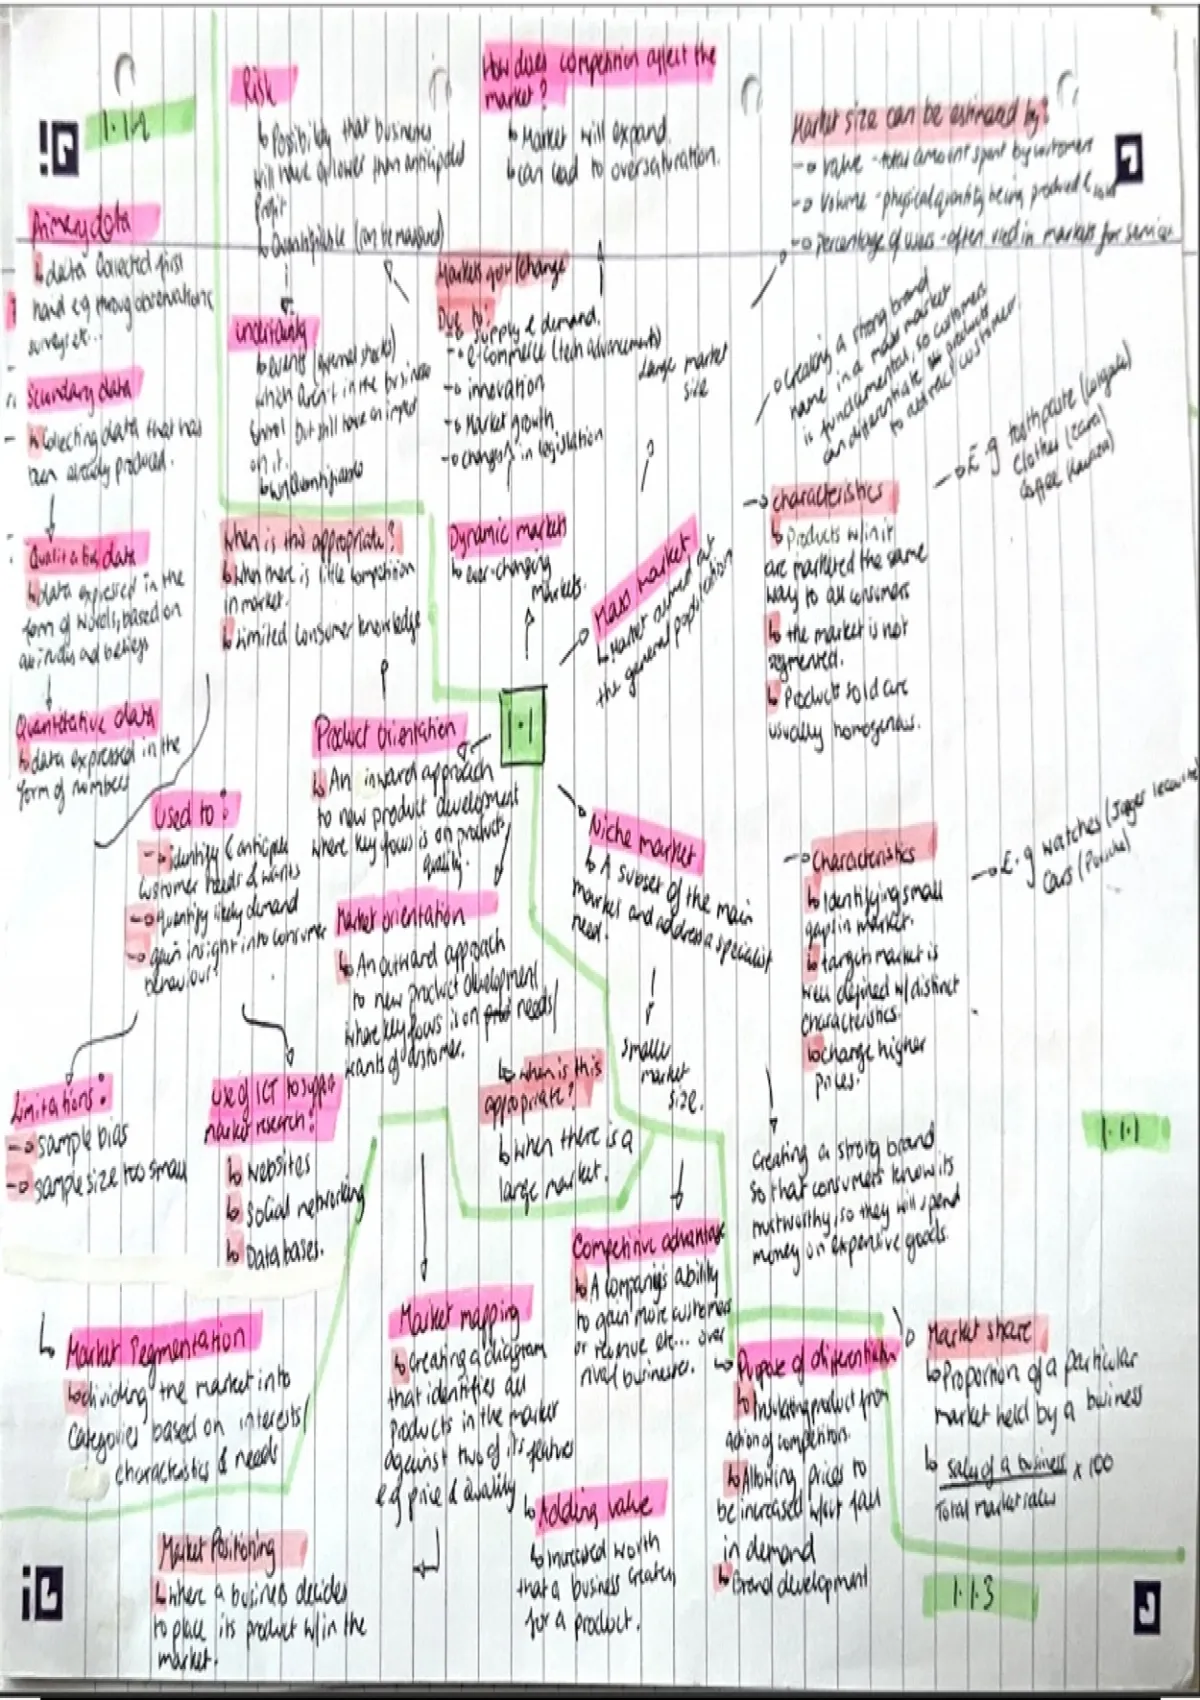 1.1.2
Primary data
↳ data collected first
hand e.g through observations
surveys etc...
Secondary data
↳ Collecting data that has
been already produced.
Qualitative data
↳ data expressed in the
form of words, based on
attitudes and beliefs
Quantitative data
↳ data expressed in the
form of numbers
Used to:
→ identify & anticipate
customer needs & wants
→ quantify likely demand
→ gain insight into consumer
behaviour
Limitations:
→ sample bias
→ sample size too small
use of ICT to support
market research:
↳ websites
↳ Social networking
↳ Databases.
↳ Market Segmentation
↳ dividing the market into
categories based on interests/
characteristics & needs
Risk
↳ Possibility that businesses
will have a lower than anticipated
Profit
↳ Quantifiable (can be measured)
uncertainty
↳ events (external shocks)
which aren't in the business
control but still have an impact
on it.
↳ unquantifiable
How does competition affect the
market?
↳ Market will expand
↳ can lead to oversaturation.
Markets grow/change
Due to:
→ supply & demand.
→ e-commerce (tech advancements)
→ innovation
→ Market growth
→ changes in legislation
Dynamic markets
↳ ever-changing
markets.
1.1
Market size can be estimated by:
→ value - total amount spent by customers
→ Volume - physical quantity being produced & sold
→ percentage of users - often used in markets for services
Mass market
↳ Market aimed at
the general population
Large market
size
→ Creating a strong brand
name in a mass market
is fundamental, so customers
can differentiate products
to attract customer.
→ characteristics
↳ products w/in it
are marketed the same
way to all consumers
↳ the market is not
segmented.
↳ Products sold are
usually homogenous.
→ E.g toothpaste (Colgate)
Clothes (Zara)
Coffee (Lavazza)
when is this appropriate?
↳ When there is little competition
in market.
↳ Limited consumer knowledge
Product orientation
↳ An inward approach
to new product development
where key focus is on products
quality.
Market orientation
↳ An outward approach
to new product development
where key focus is on needs/
wants of customer.
↳ when is this
appropriate?
↳ when there is a
large market.
Niche market
↳ A subset of the main
market and address a specialist
need.
smaller
market
size.
→ Characteristics
↳ Identifying small
gaps in market.
↳ target market is
well defined w/ distinct
characteristics.
↳ change higher
prices.
→ E.g watches (Jaeger lecoultre)
Cars (Porsche)
Creating a strong brand
so that consumers know its
trustworthy, so they will spend
money on expensive goods.
1.1.1
Market mapping
↳ creating a diagram
that identifies all
products in the market
against two of its features
e.g price & quality
Market Positioning
↳ where a business decides
to place its product w/in the
market.
Competitive advantage
↳ A company's ability
to gain more customers
or revenue etc... over
rival businesses.
↳ Adding value
↳ increased worth
that a business creates
for a product.
→ Purpose of differentiation
↳ Insulating product from
action of competitors.
↳ Allowing prices to
be increased w/out fall
in demand
↳ Brand development
Market share
↳ Proportion of a particular
market held by a business
↳ sales of a business x 100
Total market sales
1.1.3